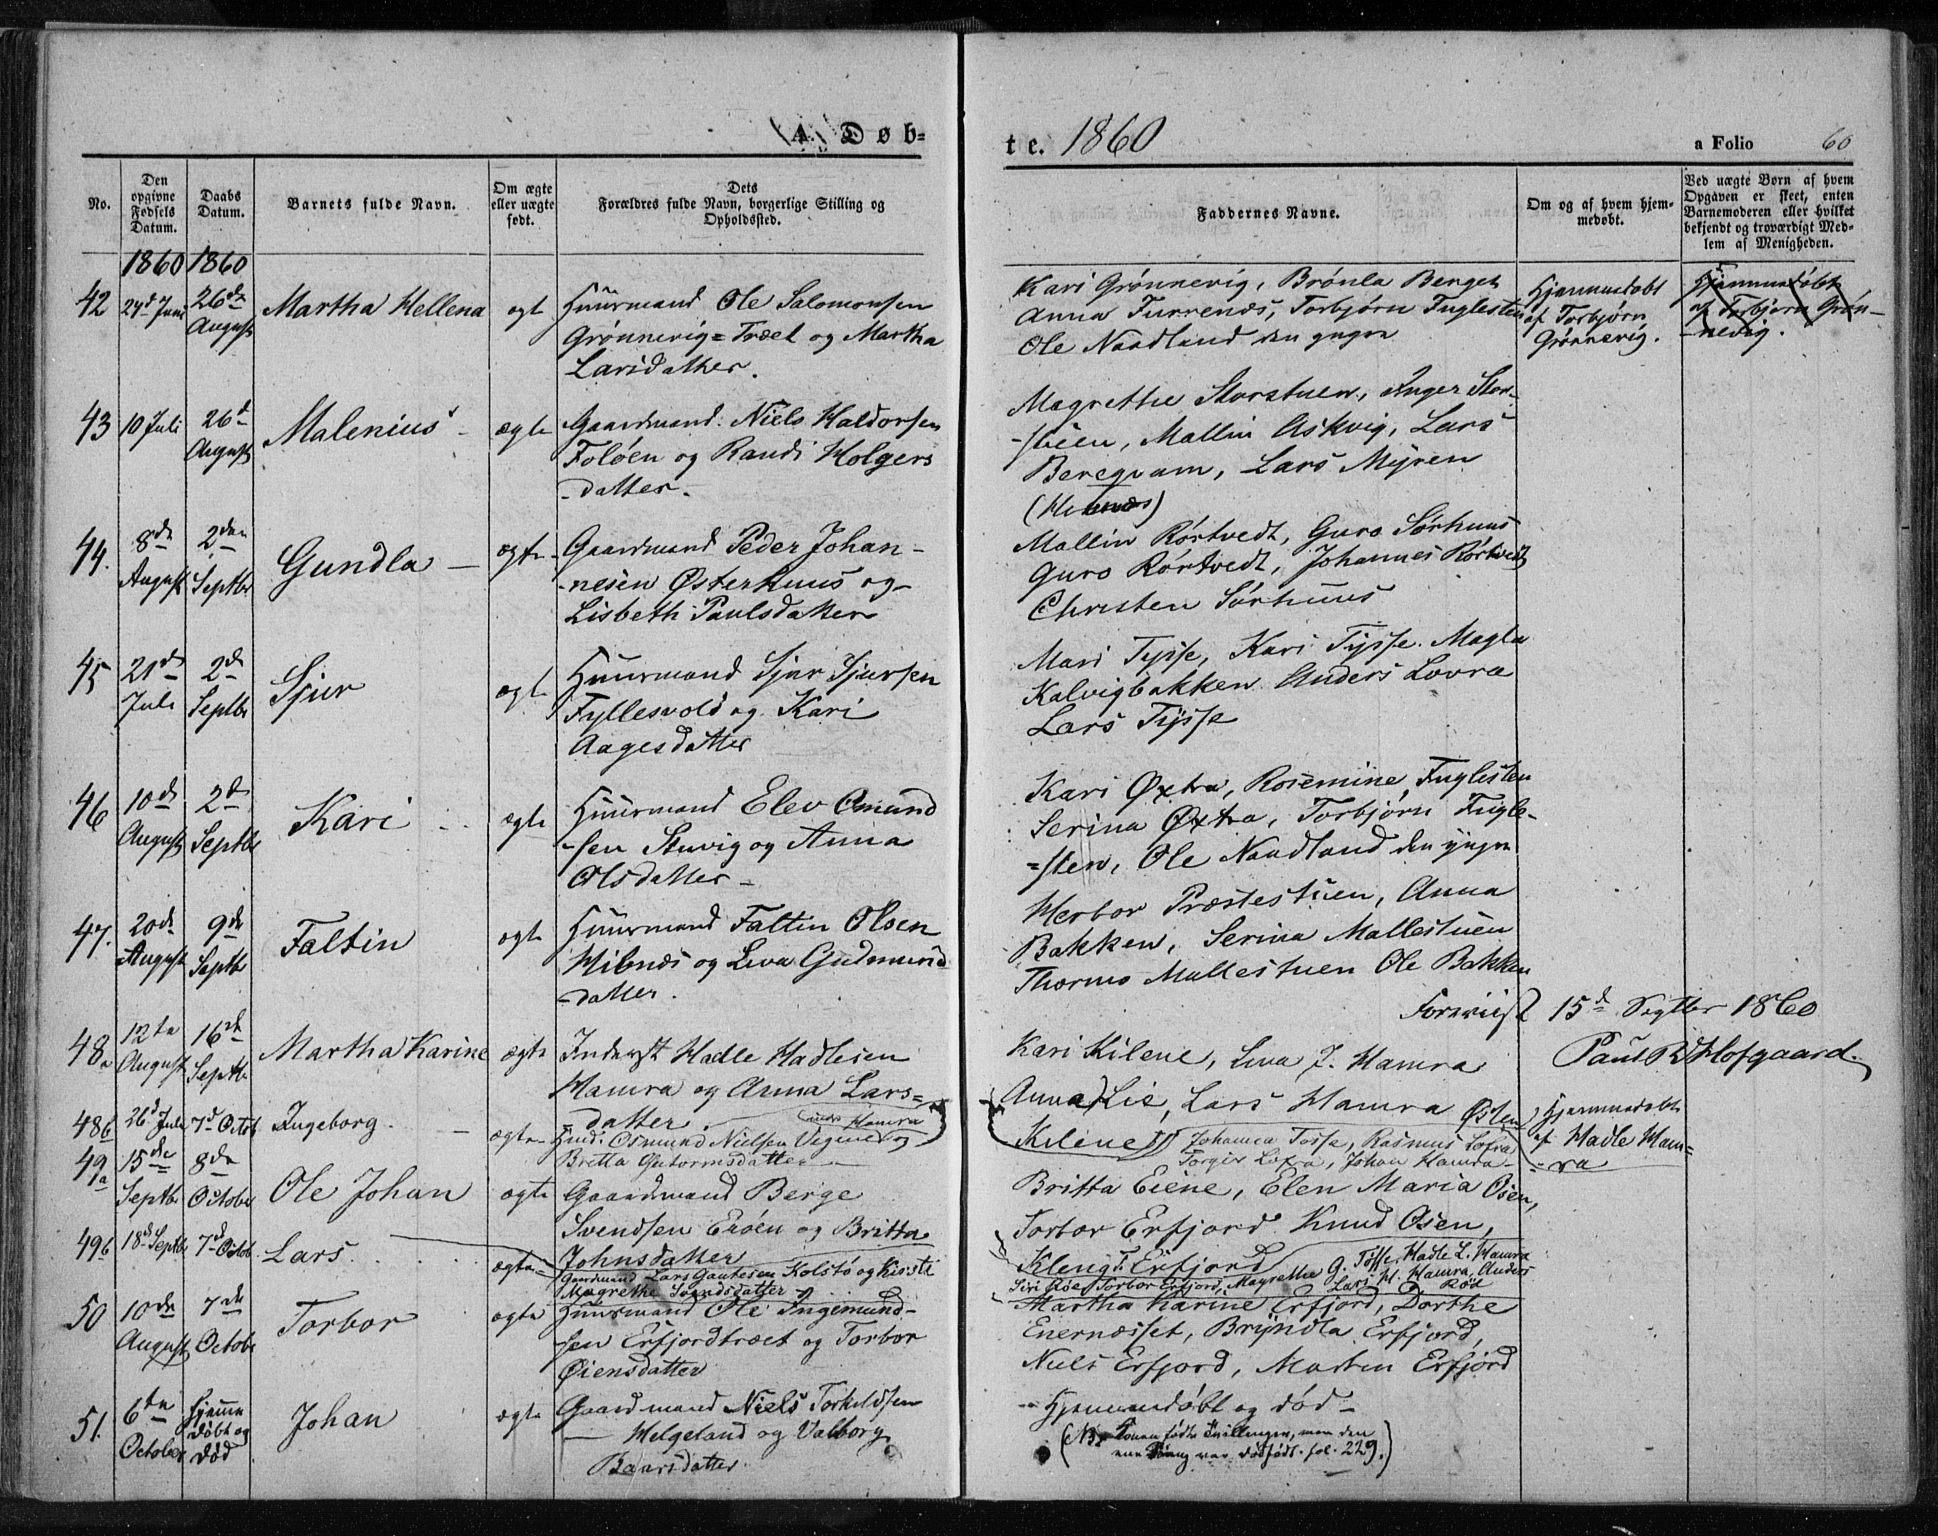 A. Døb=
te. 1860
a Folio 60
No.
Den opgivne Fødsels Datum.
Daabs Datum.
Barnets fulde Navn.
Om ægte eller uægte født.
Dets
Forældres fulde Navn, borgerlige Stilling og Opholdssted.
Faddernes Navne.
Om og af hvem hjemmedøbt.
Ved uægte Børn af hvem Opgaven er skeet, enten Barnemoderen eller hvilket bekjendt og troværdigt Medlem af Menigheden.
1860 1860
42 24d Juni 26de August Martha Hellena ægte Huusmand Ole Salomonsen
Grønnevig=Træet og Martha
Larsdatter.
Kari Grønnevig, Brønla Berget
Anna Furrenes, Torbjørn Fuglesten
Ole Naadland den yngre
Hjemmedøbt
af Torbjørn
Grønnevig.
Hjemmedøbt
af Torbjørn Grøn-
-nevig.
43 10 Juli 26d August Malenius ægte Gaardmand Niels Haldorsen
Foløen og Randi Holgers
-datter.
Magrethe Storstuen, Inger Stor-
-stuen, Mallin Askvig, Lars
Bergqvam, Lars Myren
44. 8de August 2den Septbr Gundla ægte Gaardmand Peder Johan-
-nesen Østerhuus og
Lisbeth Paulsdatter
Mallin Rørtvedt, Guro Sørhuus
Guro Rørtvedt, Johannes Rørtvedt
Christen Sørhuus
45 21de Juli 2d Septbr Sjur ægte Huusmand Sjur Sjursen
Fyllesvold og Kari
Aagesdatter
Mari Tysse, Kari Tysse, Magla
Kalvigbakken Anders Lovra
Lars Tysse
46 10de August 2d Septbr Kari ægte Huusmand Elev Omund
-sen Stuvig og Anna
Olsdatter
Kari Øxtra, Rosemine Fuglesten
Serina Øxtra, Torbjørn Fugle-
=sten, Ole Naadland den yngre
47. 20de August 9de Septbr Faltin ægte Huusmand Faltin Olsen
Hibnæs og Liva Gudmund
-datter.
Herbor Præstestuen, Anna
Bakken, Serina Mallestuen
Thormo Mallestuen Ole Bakken
Forevist 15d Septbr 1860
Paul R Hofgaard.
48a 12te August 16de Septbr Martha Karine ægte Inderst Hadle Hadlesen
Hamra og Anna Lars=
datter.
Kari Kilene, Liva J. Hamra
Anna Lie, Lars Hamra Østen
Kilene
Hjemmedøbt
af Hadle Ham=
=ra
48b 26d Juli 7d Octob Ingeborg. ægte Huusm: Osmund Nielsen under Hamra og
Britta Gutormsdatter
Johanna Tosse, Rasmus Lofra
Torgier Lofra, Johan Hamra
49a 15de Septbr 8de Octobr Ole Johan ægte Gaardmand Berge
Svendsen Erøen og Britta
Johnsdatter
Britta Eiene, Elen Maria Osen,
Torbor Erfjord Knud Osen,
Kleng T. Erfjord
49b 18d Septbr 7d Octob Lars. ægte Gaardmand Lars Gautesen Kolstø og Kirsti
Magrethe Svendsdatter
Siri Røe, Torbor Erfjord, Magrethe G. Tysse, Hadle L. Hamra
Lars H. Hamra, Anders Røe
50 10de August 7de Octobr Torbor ægte Huusmand Ole Ingemund-
sen Erfjordtræet og Torbor
Øiensdatter
Martha Karine Erfjord, Dorthe
Enernæsset, Bryndla Erfjord,
Niels Erfjord, Morten Erfjord
51. 6te October Hjemme døbt og død Johan ægte Gaardmand Niels Torkeldsen
Helgeland og Valborg
Baarsdatter.
Hjemmedøbt og død
(NB. Konen fødte Tvillinger, men den
ene Dreng var dødfødt. fol. 229.)